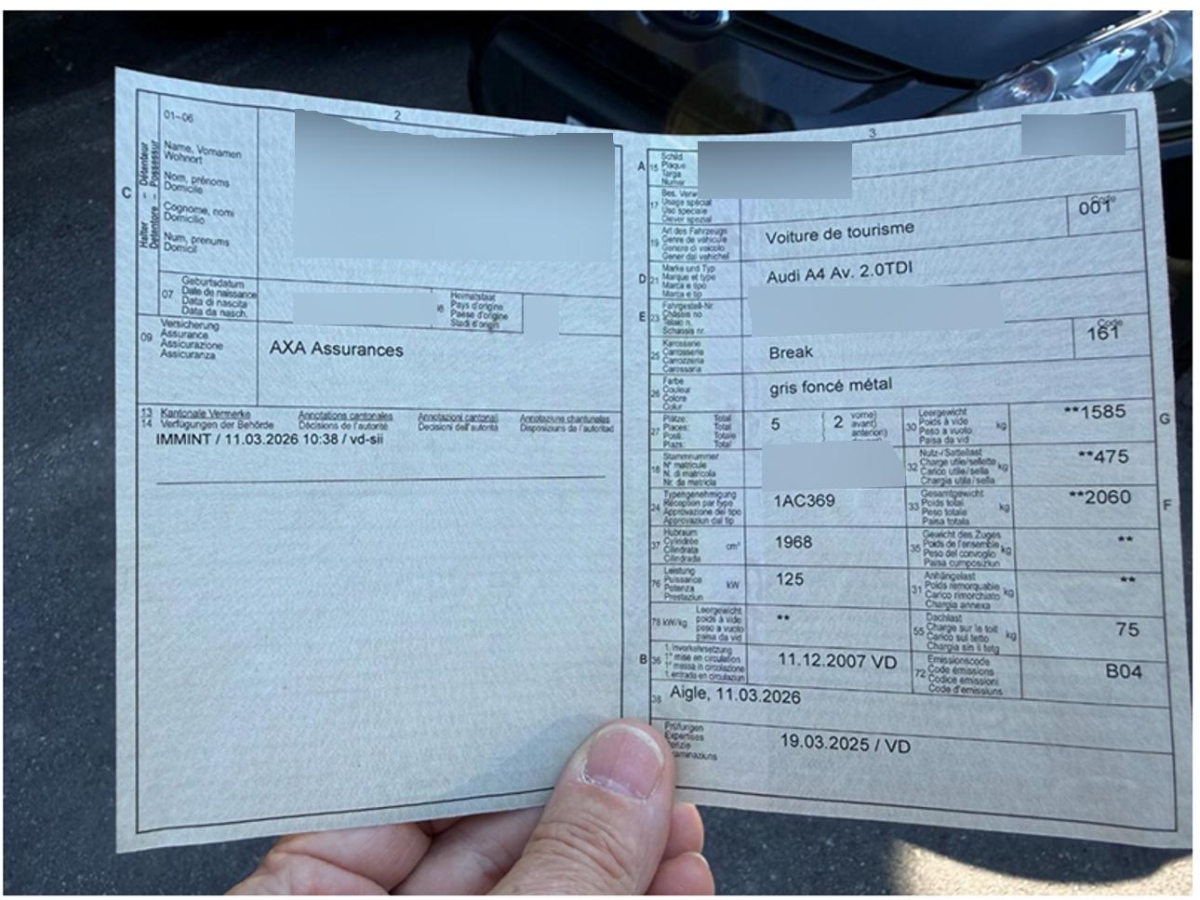 2
01-06
Name, Vornamen
Wohnort
Nom, prénoms
Domicile
Cognome, nomi
Domicilio
Num, prenums
Domicil
C
Halter - Détenteur
Detentore - Possessur
07
Geburtsdatum
Date de naissance
Data di nascita
Data da nasch.
Heimatstaat
Pays d'origine
Paese d'origine
Stadi d'origin
09
Versicherung
Assurance
Assicurazione
Assicuranza
AXA Assurances
13 Kantonale Vermerke Annotations cantonales Annotazioni cantonali Annotaziuns chantunalas
14 Verfügungen der Behörde Décisions de l'autorité Decisioni dell'autorità Disposiziuns da l'autoritad
IMMINT / 11.03.2026 10:38 / vd-sii
3
A 15
Schild
Plaque
Targa
Numer
17
Usage spécial
Uso speciale
Diever spezial
19
Art des Fahrzeugs
Genre de véhicule
Genere di veicolo
Gener dal vehichel
Voiture de tourisme
Code
001
D 21
Marke und Typ
Marque et type
Marca e tipo
Marca e tip
Audi A4 Av. 2.0TDI
E 23
Fahrgestell-Nr.
Châssis no
Telaio n.
Schassis nr.
25
Karosserie
Carrosserie
Carrozzeria
Carossaria
Break
Code
161
26
Farbe
Couleur
Colore
Colur
gris foncé métal
27
Plätze: Total
Places: Total
Posti: Totale
Plazs: Total
5
2
vorne)
avant)
anteriori)
30
Leergewicht
Poids à vide
Peso a vuoto
Paisa da vid
kg
**1585
G
18
Stammnummer
N° matricule
N. di matricola
Nr. da matricla
32
Nutz-/Sattellast
Charge utile/sellette
Carico utile/sella
Chargia utila/sella
kg
**475
24
Typengenehmigung
Réception par type
Approvazione del tipo
Approvaziun dal tip
1AC369
33
Gesamtgewicht
Poids total
Peso totale
Paisa totala
kg
**2060
F
37
Hubraum
Cylindrée
Cilindrata
Cilindrada
cm³
1968
35
Gewicht des Zuges
Poids de l'ensemble
Peso del convoglio
Paisa cumposiziun
kg
**
76
Leistung
Puissance
Potenza
Prestaziun
kW
125
31
Anhängelast
Poids remorquable
Carico rimorchiato
Chargia annexa
kg
**
78 kW/kg
Leergewicht
poids à vide
peso a vuoto
paisa da vid
**
55
Dachlast
Charge sur le toit
Carico sul tetto
Chargia sin il tetg
kg
75
B 36
1. Inverkehrsetzung
1re mise en circulation
1a messa in circolazione
1. entrada en circulaziun
11.12.2007 VD
72
Emissionscode
Code émissions
Codice emissioni
Code d'emissiuns
B04
38
Aigle, 11.03.2026
Prüfungen
Expertises
19.03.2025 / VD